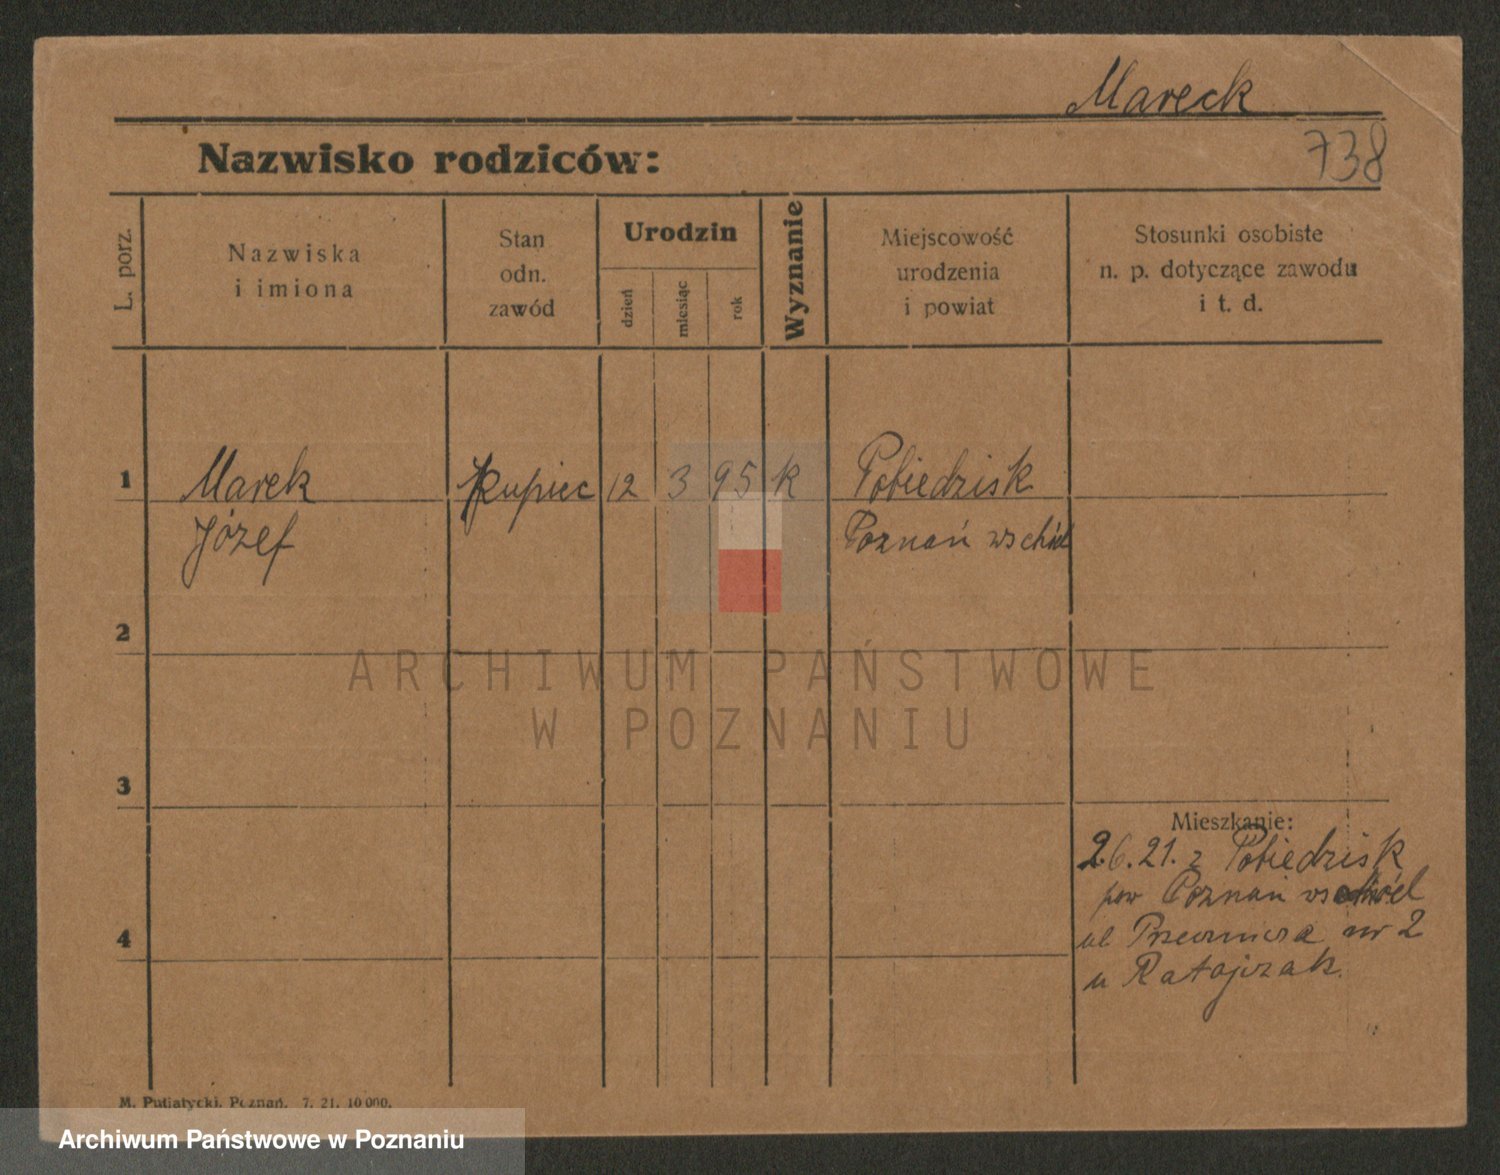 Mareck
Nazwisko rodziców:
738
L. porz.
Nazwiska
i imiona
Stan
odn.
zawód
Urodzin
dzień
miesiąc
rok
Wyznanie
Miejscowość
urodzenia
i powiat
Stosunki osobiste
n. p. dotyczące zawodu
i t. d.
1
Marek
Józef
kupiec
12
3
95
k
Pobiedzisk
Poznań wschód
2
3
4
Mieszkanie:
2.6.21. z Pobiedzisk
pow Poznań wschód
ul nr 2
u Ratajczak.
M. Putiatycki, Poznań. 7. 21. 10 000.
ARCHIWUM PAŃSTWOWE
W POZNANIU
Archiwum Państwowe w Poznaniu